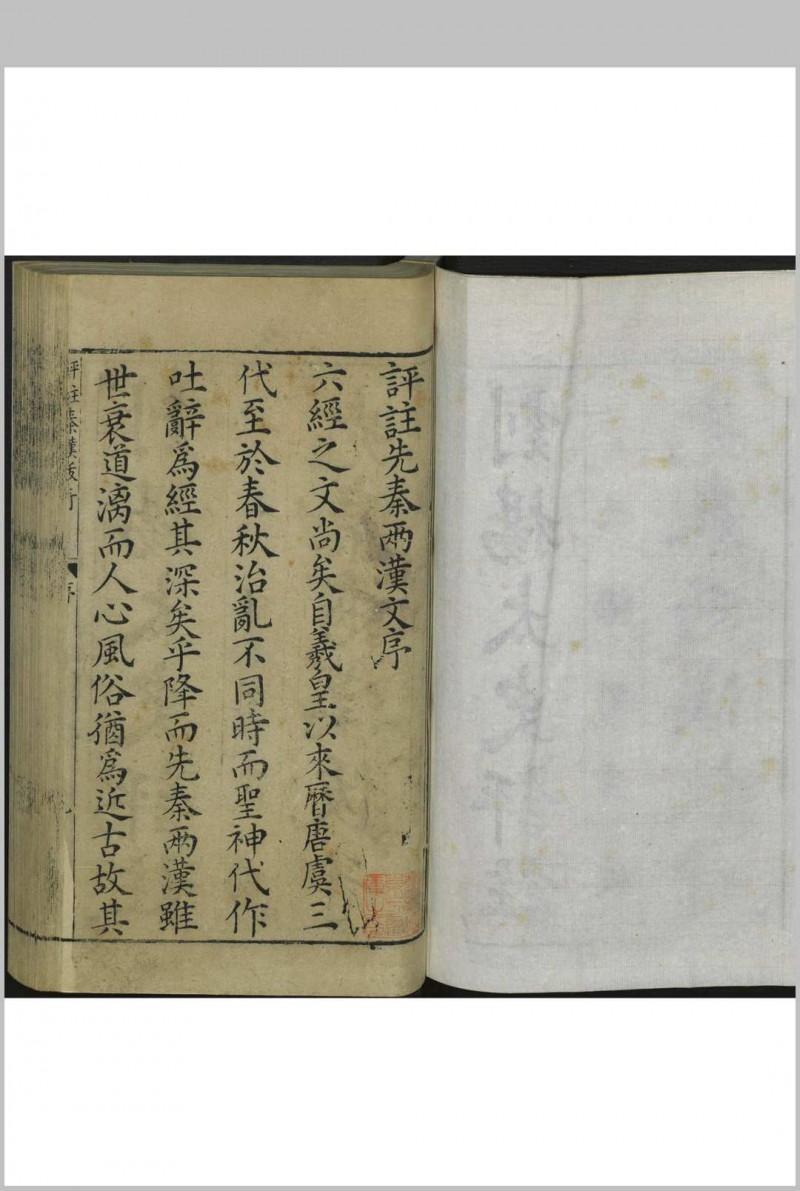 評註先秦兩漢文序
六經之文尚矣自羲皇以來曆唐虞三
代至於春秋治亂不同時而聖神代作
吐辭爲經其深矣乎降而先秦兩漢雖
世衰道漓而人心風俗猶爲近古故其
評註秦漢
序